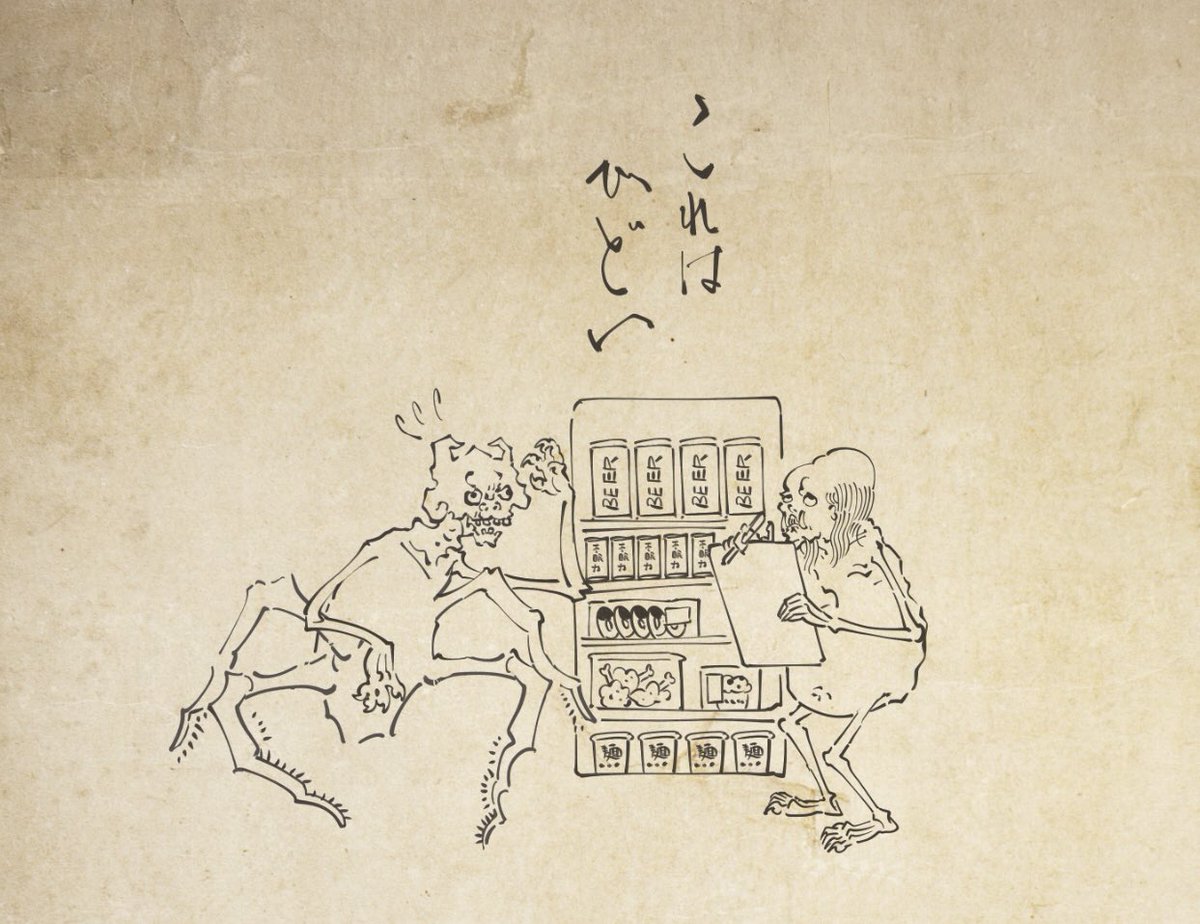 これは
ひどい
BEER BEER BEER BEER
不眠力 不眠力 不眠力 不眠力
麺 麺 麺 麺